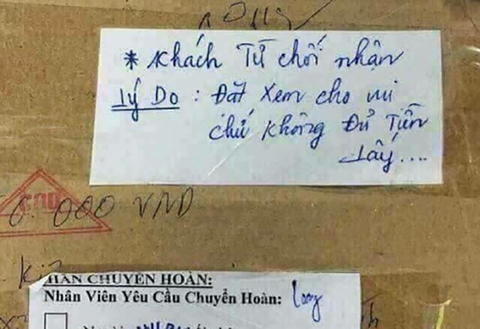 * Khách Từ chối nhận
Lý Do : Đặt xem cho vui
chứ không Đủ Tiền
Lấy....
COD
6.000 VND
HÀN CHUYỂN HOÀN:
Nhân Viên Yêu Cầu Chuyển Hoàn: